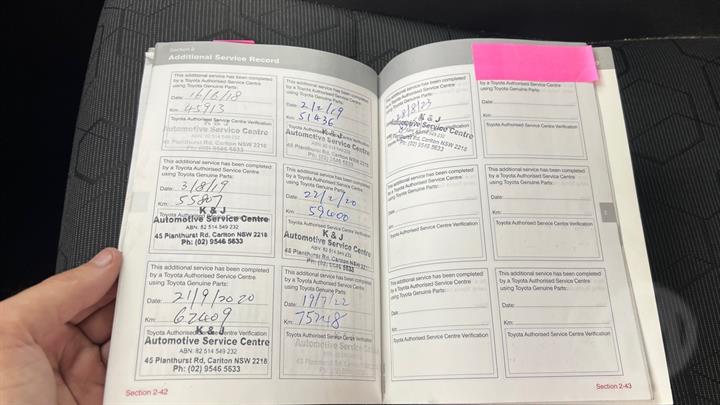 Section 2
Additional Service Record
This additional service has been completed
by a Toyota Authorised Service Centre
using Toyota Genuine Parts:
Date: 16/6/18
Km: 45913
Toyota Authorised Service Centre Verification
K & J
Automotive Service Centre
ABN: 82 514 549 232
45 Planthurst Rd, Carlton NSW 2218
Ph: (02) 9546 5633
This additional service has been completed
by a Toyota Authorised Service Centre
using Toyota Genuine Parts:
Date: 2/2/19
Km: 51436
Toyota Authorised
K & J
Automotive Service Centre
ABN: 82 514 549 232
45 Planthurst Rd, Carlton NSW 2218
Ph: (02) 9546 5633
This additional service has been completed
by a Toyota Authorised Service Centre
using Toyota Genuine Parts:
Date: 3/8/19
Km: 55807
Toyota Authorised Service Centre Verification
K & J
Automotive Service Centre
ABN: 82 514 549 232
45 Planthurst Rd, Carlton NSW 2218
Ph: (02) 9546 5633
This additional service has been completed
by a Toyota Authorised Service Centre
using Toyota Genuine Parts:
Date: 22/2/20
Km: 59600
Toyota Authorised Service Centre Verification
K & J
Automotive Service Centre
ABN: 82 514 549 232
45 Planthurst Rd, Carlton NSW 2218
Ph: (02) 9546 5633
This additional service has been completed
by a Toyota Authorised Service Centre
using Toyota Genuine Parts:
Date: 21/9/2020
Km: 62409
Toyota Authorised Service Centre Verification
K & J
Automotive Service Centre
ABN: 82 514 549 232
45 Planthurst Rd, Carlton NSW 2218
Ph: (02) 9546 5633
This additional service has been completed
by a Toyota Authorised Service Centre
using Toyota Genuine Parts:
Date: 19/7/22
Km: 75248
Toyota Authorised Service Centre Verification
Automotive Service
Section 2-42
This additional service has been completed
by a Toyota Authorised Service Centre
using Toyota Genuine Parts:
28/8/23
K & J
Automotive Service Centre
45 Planthurst Rd, Carlton NSW 2218
Ph: (02) 9546 5633
by a Toyota Authorised Service Centre
using Toyota Genuine Parts:
Date:
Km:
Toyota Authorised Service Centre Verification
This additional service has been completed
by a Toyota Authorised Service Centre
using Toyota Genuine Parts:
Date:
Km:
Toyota Authorised Service Centre Verification
This additional service has been completed
by a Toyota Authorised Service Centre
using Toyota Genuine Parts:
Date:
Km:
Toyota Authorised Service Centre Verification
This additional service has been completed
by a Toyota Authorised Service Centre
using Toyota Genuine Parts:
Km:
Toyota Authorised Service Centre Verification
This additional service has been completed
by a Toyota Authorised Service Centre
using Toyota Genuine Parts:
Date:
Km:
Toyota Authorised Service Centre Verification
Section 2-43